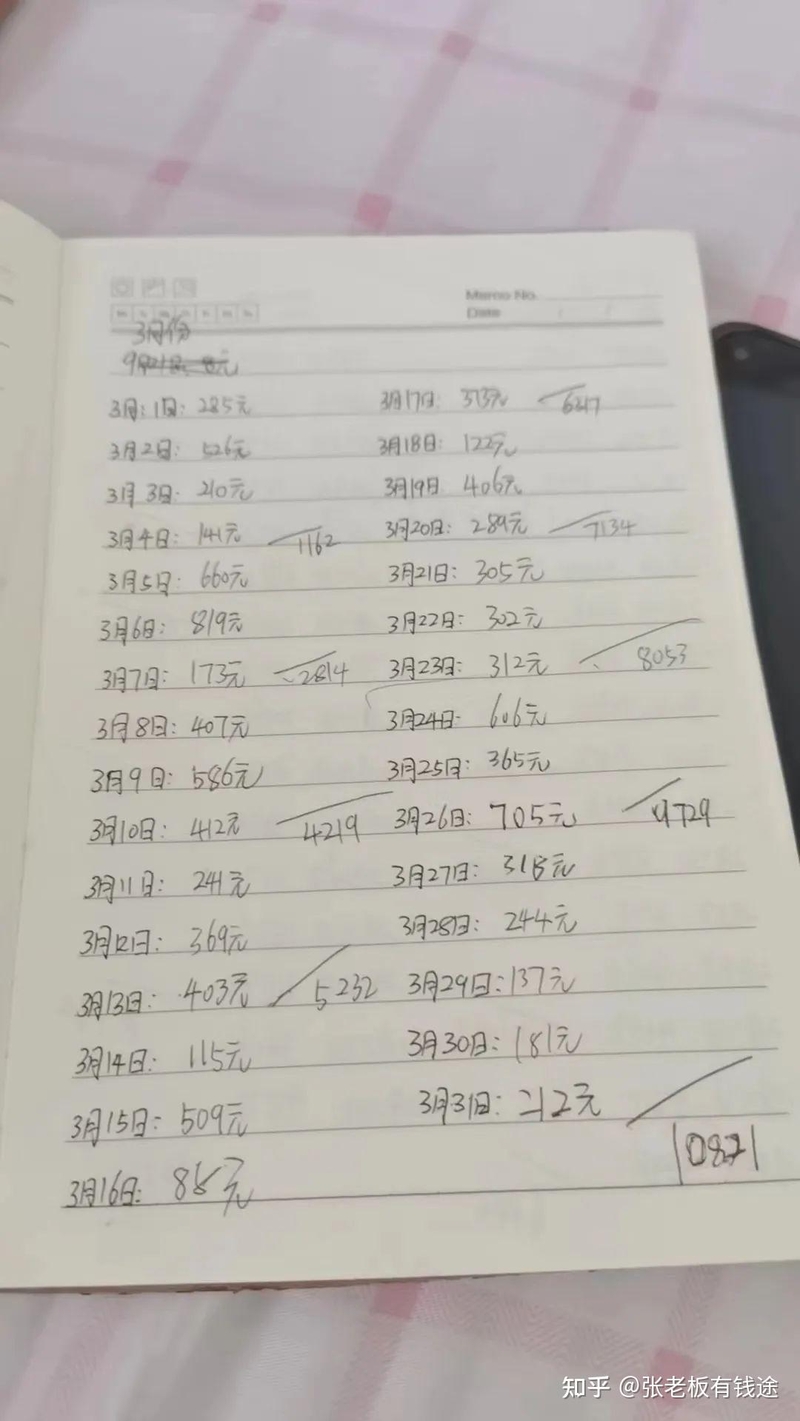 Memo No.
Date
3月份
3月1日: 285元
3月2日: 526元
3月3日: 210元
3月4日: 141元 1162
3月5日: 660元
3月6日: 819元
3月7日: 173元 2814
3月8日: 407元
3月9日: 586元
3月10日: 412元 4219
3月11日: 241元
3月12日: 369元
3月13日: 403元 5232
3月14日: 115元
3月15日: 509元
3月16日: 元
3月17日: 313元 6247
3月18日: 122元
3月19日 406元
3月20日: 289元 7134
3月21日: 305元
3月22日: 302元
3月23日: 312元 8053
3月24日: 606元
3月25日: 365元
3月26日: 705元 9729
3月27日: 元
3月28日: 244元
3月29日: 137元
3月30日: 181元
3月31日: 212元
知乎 @张老板有钱途